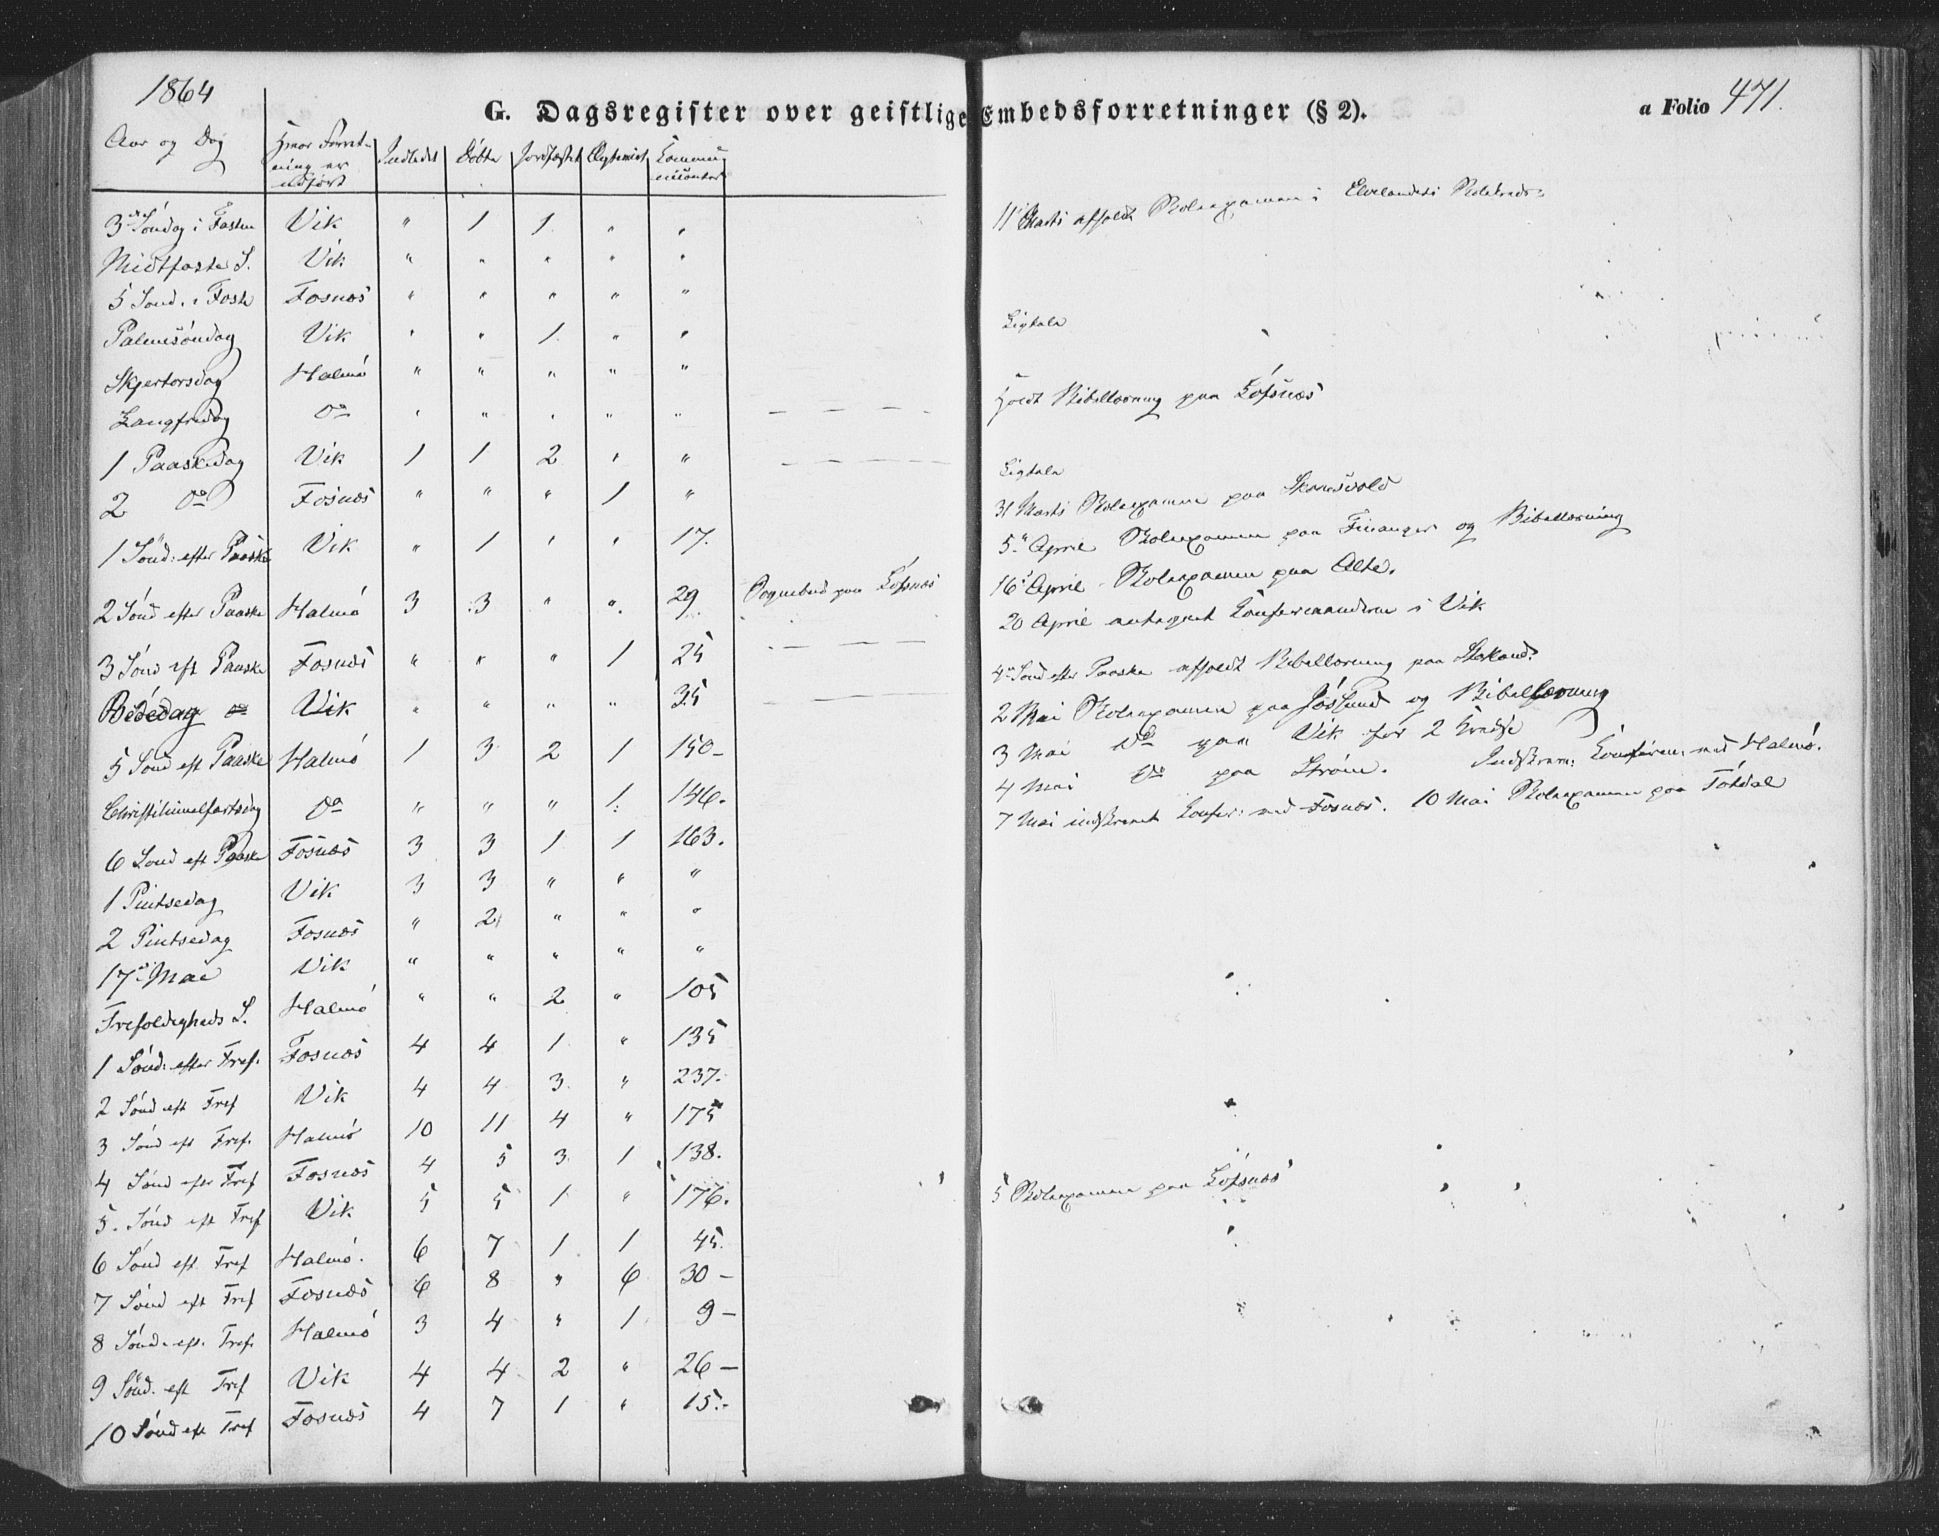 1864
G. Dagsregister over geistlige Embedsforretninger (§ 2).
a Folio 471.
Aar og Dag Hvor Forret- Indledet Døbte Jordfæstet Ægteviet Commu-
ning er nicanter
udført
3die Søndag i Fasten Vik " 1 1 " "
Midtfaste S. Vik " " " " "
5 Sønd. i Faste Fosnæs " " " " "
Palmesøndag Vik " " 1 " "
Skjertorsdag Halmø " " " " "
Langfredag Do " " " " "
1 Paaskedag Vik 1 1 2 " "
2 Do Fosnæs " " " 1 "
1 Sønd: efter Paaske Vik " 1 " " 17.
2 Sønd efter Paaske Halmø 3 3 " " 29 Sognebud paa Lófsnæs
3 Sønd eft Paaske Fosnæs " " " 1 25
Bededag Vik " " " " 35
5 Sønd eft Paaske Halmø 1 3 2 1 150-
Christihimmelfartsdag Do " " " 1. 146.
6 Sønd eft Paaske Fosnæs 3 3 1 1 163.
1 Pintsedag Vik 3 3 " " "
2 Pintsedag Fosnæs " 2 " " "
17de Mai Vik " " " " "
Trefoldigheds S. Halmø " " 2 " 105
1 Sønd: efter Tref. Fosnæs 4 4 1 " 135
2 Sønd eft Tref Vik 4 4 3 " 237.
3 Sønd eft Tref. Halmø 10 11 4 " 175
4 Sønd efter Tref Fosnæs 4 5 3 1 138.
5. Sønd eft Tref Vik 5 5 1 " 176.
6 Sønd eft Tref Halmø. 6 7 1 1 45.
7 Sønd eft Tref Fosnæs 6 8 " 6 30-
8 Sønd. eft. Tref. Halmø 3 4 " 1 9-
9 Sønd. eft Tref Vik 4 4 2 " 26-
10 Sønd eft Tref Fosnæs 4 7 1 " 15.-
11 Marts afholdt Skoleexamen i Elvelandets Skolekreds
Ligtale
Holdt Bibellæsning paa Lófsnæs
Ligtale
31 Marts Skoleexamen paa
5 April Skoleexamen paa Finanger og Bibellæsning
16 April Skoleexamen paa Alte.
20 April antegnet Confirmanderne i Vik
4 Sønd efter Paaske afholdt Bibellæsning paa
2 Mai Skoleexamen paa Jøslund og Bibellæsning
3 Mai Do paa Vik for 2 Kredse
4 Mai Do paa Strøm. Indskrev: Confirm: ved Halmø.
7 Mai indskrevet Confir: ved Fosnæs. 10 Mai Skoleexamen paa Tótdal
5 Skoleexamen paa Lófsnæs